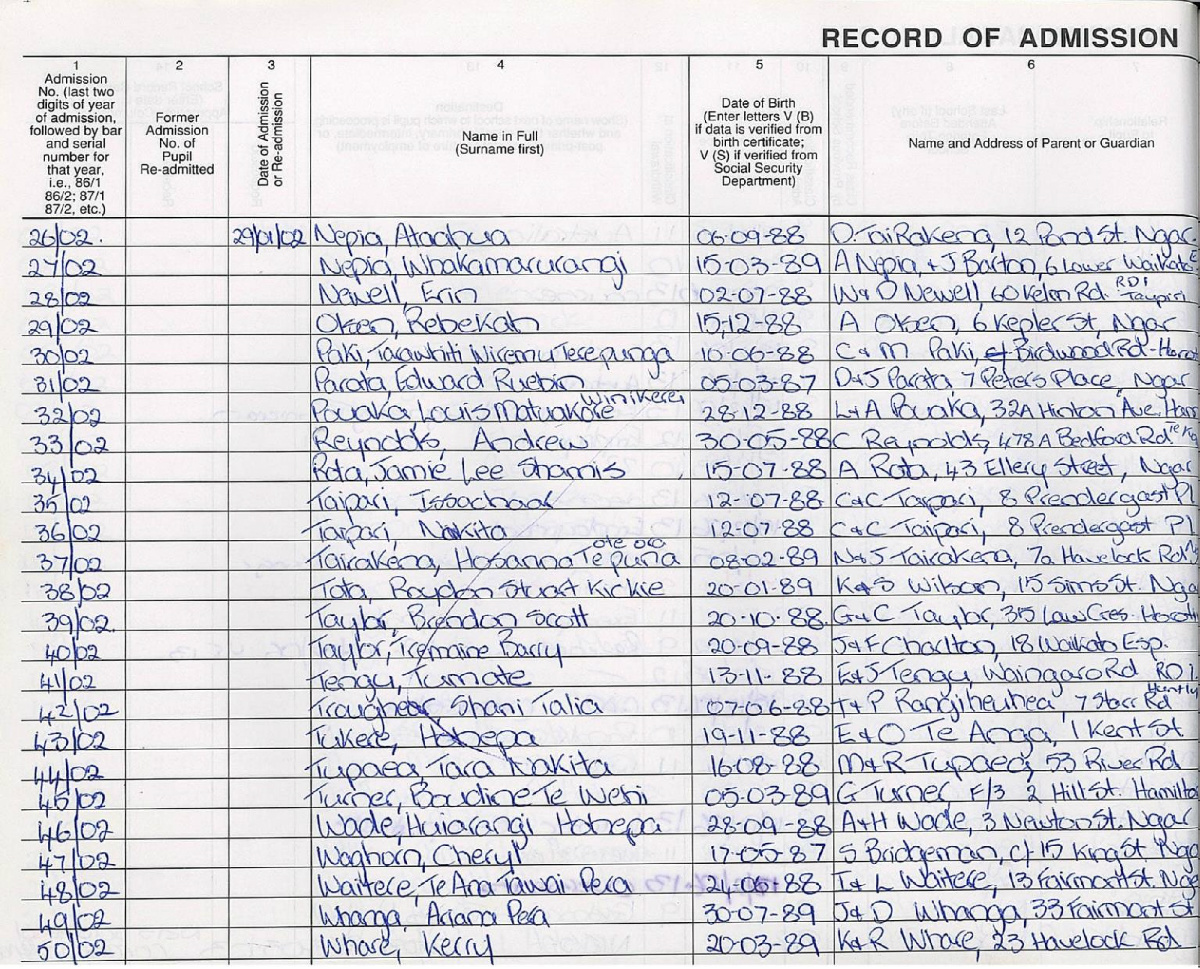 RECORD OF ADMISSION
1 2 3 4 5 6
Admission No. (last two digits of year of admission, followed by bar and serial number for that year, i.e., 86/1 86/2; 87/1 87/2, etc.)
Former Admission No. of Pupil Re-admitted
Date of Admission or Re-admission
Name in Full (Surname first)
Date of Birth (Enter letters V (B) if data is verified from birth certificate; V (S) if verified from Social Security Department)
Name and Address of Parent or Guardian
26/02. 29/01/02 Nepia, Ataahua 06-09-88 D. TaiRakena, 12 Pond St. Ngar
27/02 Nepia, Whakamarurangi 15-03-89 A Nepia, + J Barton, 6 Lower Waikato E
28/02 Newell, Erin 02-07-88 W & D Newell, 60 Kelm Rd. RD1 Taupiri
29/02 Olsen, Rebekah 15-12-88 A Olsen, 6 Kepler St, Ngar
30/02 Paki, Tarawhiti Wiremu Terepunga 10-06-88 C & M Paki, Birdwood Rd-
31/02 Parata, Edward Ruebin 05-03-87 D&J Parata 7 Peters Place, Ngar
32/02 Pouaka, Louis Matuakore Winikerei 28-12-88 L+A Pouaka, 32A Hinton Ave. Ham
33/02 Reynolds, Andrew 30-05-88 C Reynolds, 478A Bedford Rd
34/02 Rata, Jamie Lee Shamis 15-07-88 A Rata, 43 Ellery Street, Ngar
35/02 Taipari, Issachar 12-07-88 C&C Taipari, 8 Prendergast Pl
36/02 Taipari, Nakita 12-07-88 C&C Taipari, 8 Prendergast Pl
37/02 Tairakena, Hosanna Te puna ote ora 08-02-89 N&J Tairakena, 7a Havelock Rd
38/02 Tata, Roydon Stuart Kickie 20-01-89 K&S Wilson, 15 Sims St. Nga
39/02. Taylor, Brendon Scott 20-10-88. G&C Taylor, Law Cres.
40/02 Taylor, Tremaine Barry 20-09-88 J&F Charlton, 18 Waikato Esp.
41/02 Tengu, Tumate 13-11-88 E&J Tengu, Waingaro Rd RD 1. Huntly
42/02 Troughear Shani Talia 07-06-88 T+P Rangiheuhea, 7 Storr Rd
43/02 Tukere, Hohepa 19-11-88 E&O Te Anga, 1 Kent St
44/02 Tupaea, Tara Nakita 16-08-88 M&R Tupaea, 53 River Rd
45/02 Turner, Boudine Te Wehi 05-03-89 G Turner, F/3 2 Hill St. Hamilto
46/02 Wade, Huiarangi Hohepa 28-09-88 A+H Wade, 3 Newton St. Ngar
47/02 Waghorn, Cheryl 17-05-87 S Bridgeman, c/ 15 King St. Nga
48/02 Waitere, Te Ara Tawai Pera 24-06-88 T & L Waitere, 13 Fairmont St. Nga
49/02 Whanga, Ariana Pera 30-07-89 J&D Whanga, 33 Fairmont St
50/02 Whare, Kerry 20-03-89 K&R Whare, 23 Havelock Rd.